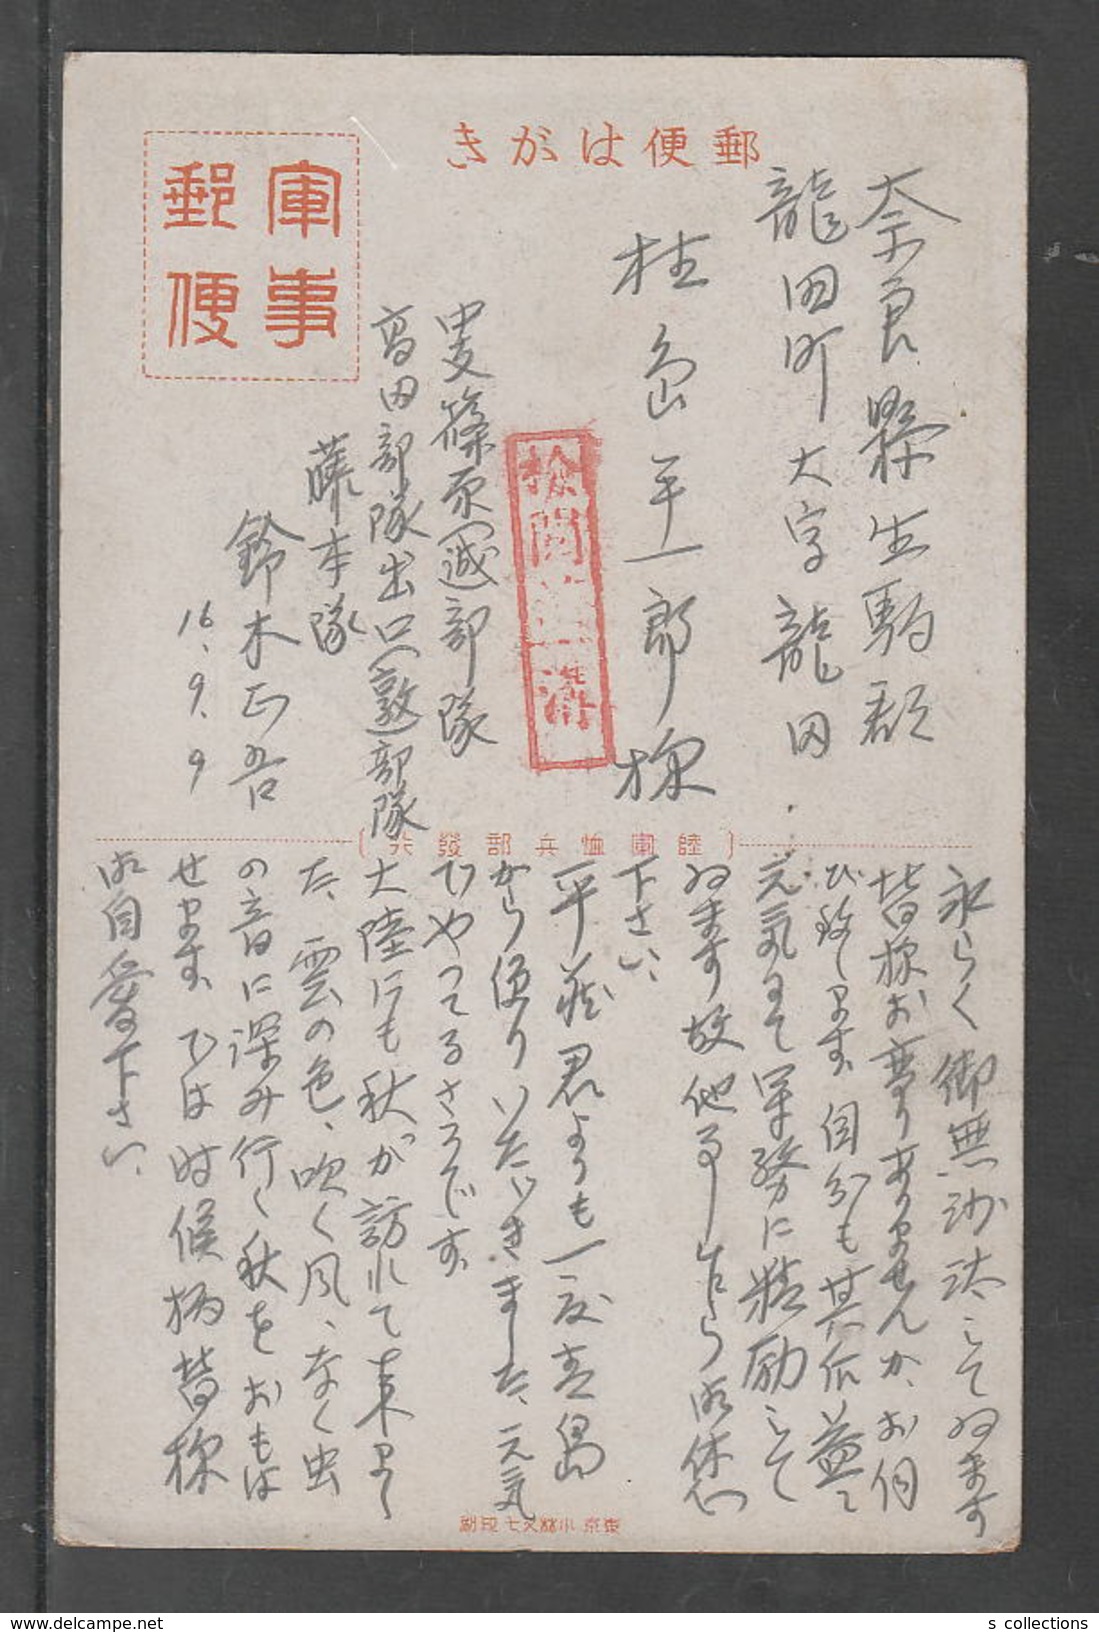 郵便はがき
軍事
郵便
奈良縣生駒郡
龍田町大字龍田
桂島平一郎様
検閲済
中支篠原(誠)部隊
高田部隊出口(敦)部隊
藤本隊
鈴木正吾
16.9.9
(陸軍恤兵部發行)
永らく御無沙汰して居ます
皆様お変りありませんか、お伺
び致します、自分も其后益々
元気にて軍務に精励して
居ます故他事乍ら御休心
下さい、
平蔵君よりも一度青島
から便りいたゞきました、元気
でやつてるさうです、
大陸にも秋が訪れて来まし
た、雲の色、吹く風、なく虫
の音に深み行く秋をおもは
せます、では時候柄皆様
御自愛下さい、
東京 小林又七印刷
s collections